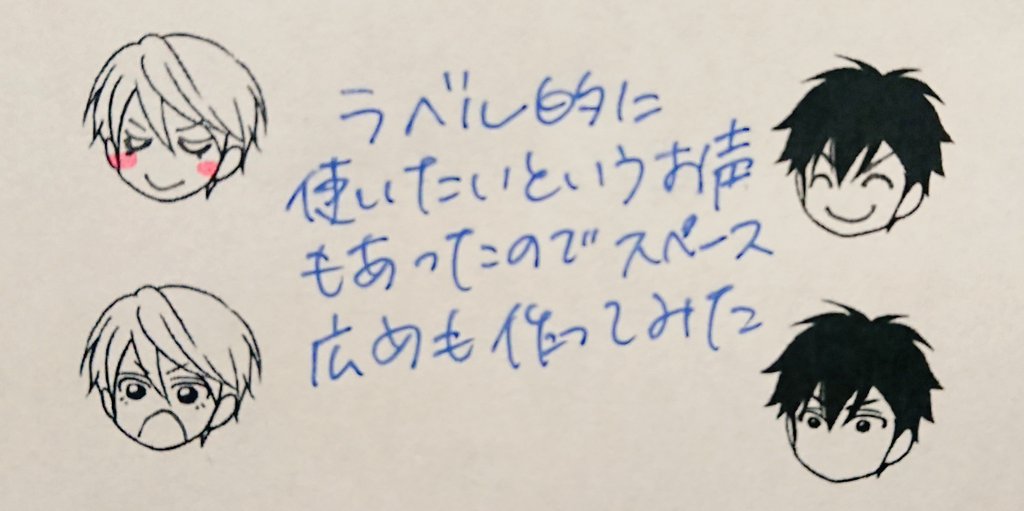 ラベル的に
使いたいというお声
もあったのでスペース
広めも作ってみた